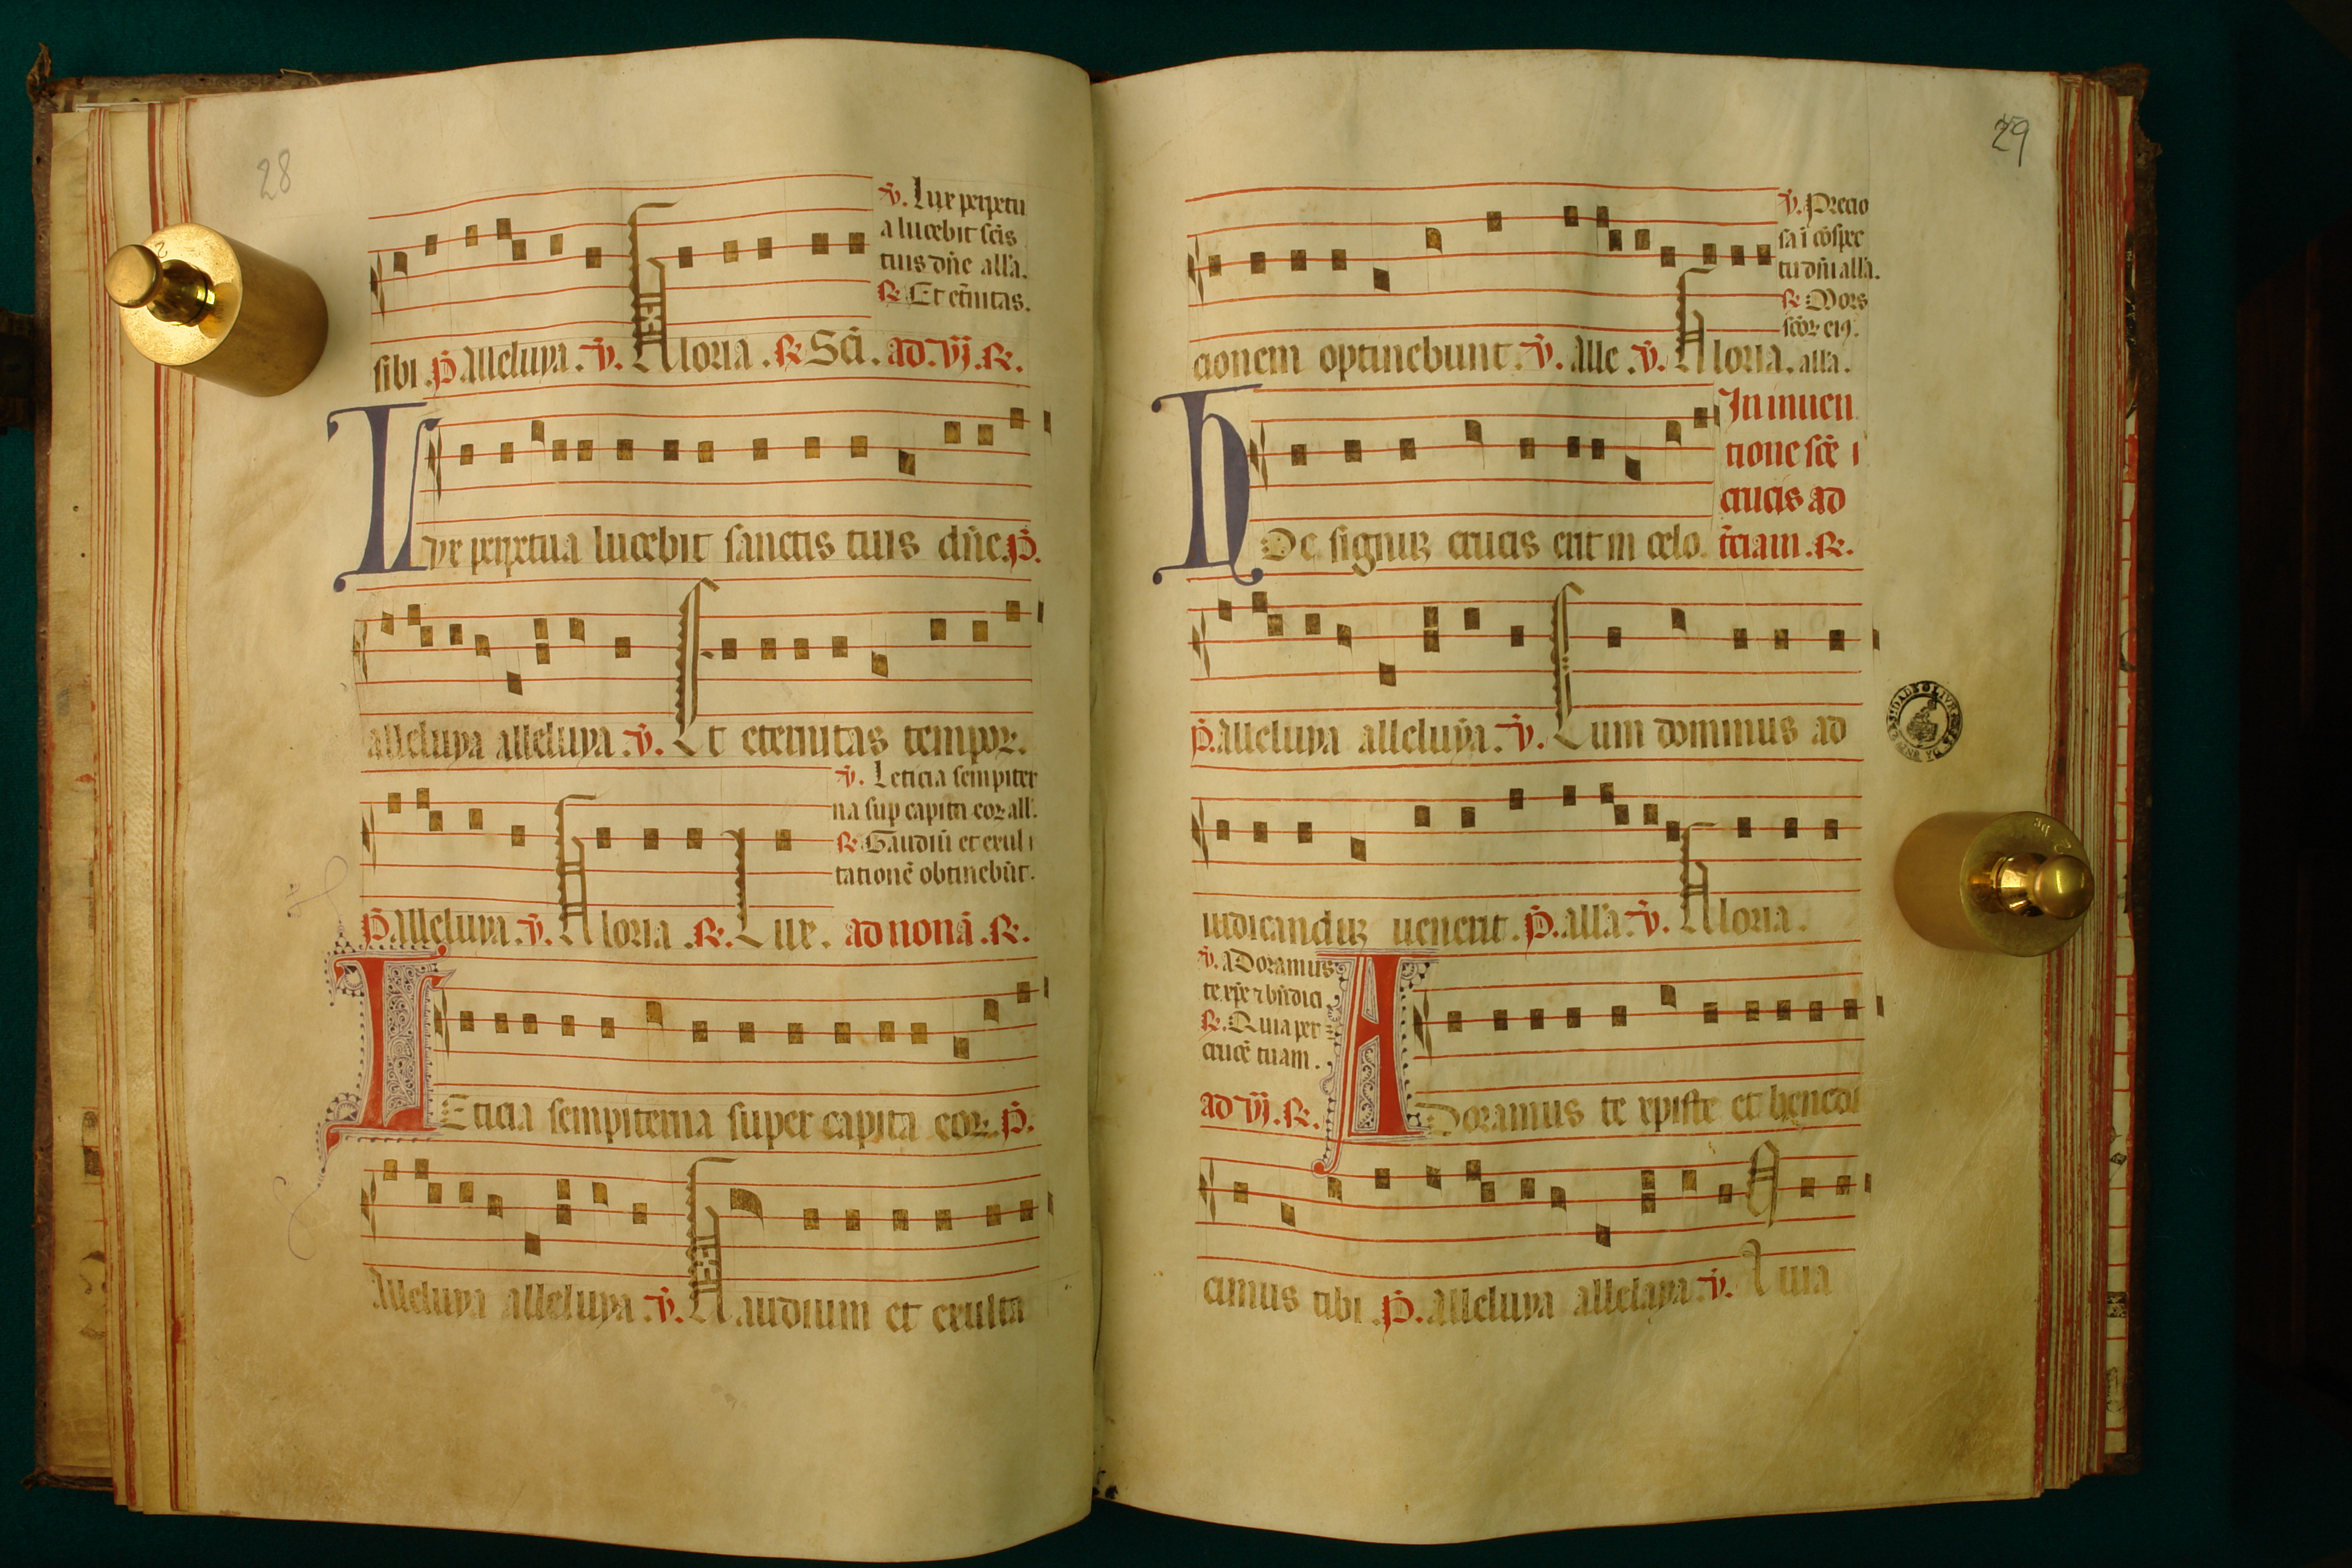 28
℣. Lux perpetu
a lucebit scis
tuis dñe all'a.
℟ Et et̃nitas.
sibi. P̃ Alleluya. ℣. Gloria. ℟ Sci. ad. vj. ℟.
Lux perpetua lucebit sanctis tuis dñe. P̃.
alleluya alleluya. ℣. Et eternitas tempoꝝ.
℣. Leticia sempiter
na sup capita eoꝝ all'.
℟ Gaudiũ et exul
tationẽ obtinebũt.
P̃. Alleluya. ℣. Gloria. ℟. Lux. ad nonã. ℟.
LEticia sempiterna super capita eoꝝ. P̃.
Alleluya alleluya. ℣. Gaudium et exulta
29
℣. Precio
sa ĩ cõspec
tu dñi all'a.
℟ Mors
scõꝝ eiꝰ.
cionem optinebunt. ℣. alle. ℣. Gloria. all'a.
In inuen
tione scẽ
crucis ad
t̃ciam. ℟.
HOc signuꝝ crucis erit in celo.
P̃. Alleluya alleluya. ℣. Cum dominus ad
iudicanduꝝ uenerit. P̃. all'a. ℣. Gloria.
℣. aDoramus
te xp̃e ⁊ bñdici
℟. Quia per
crucẽ tuam.
ad vj. ℟. ADoramus te xpiste et benedi
cimus tibi. P̃. alleluya alleluya. ℣. Quia